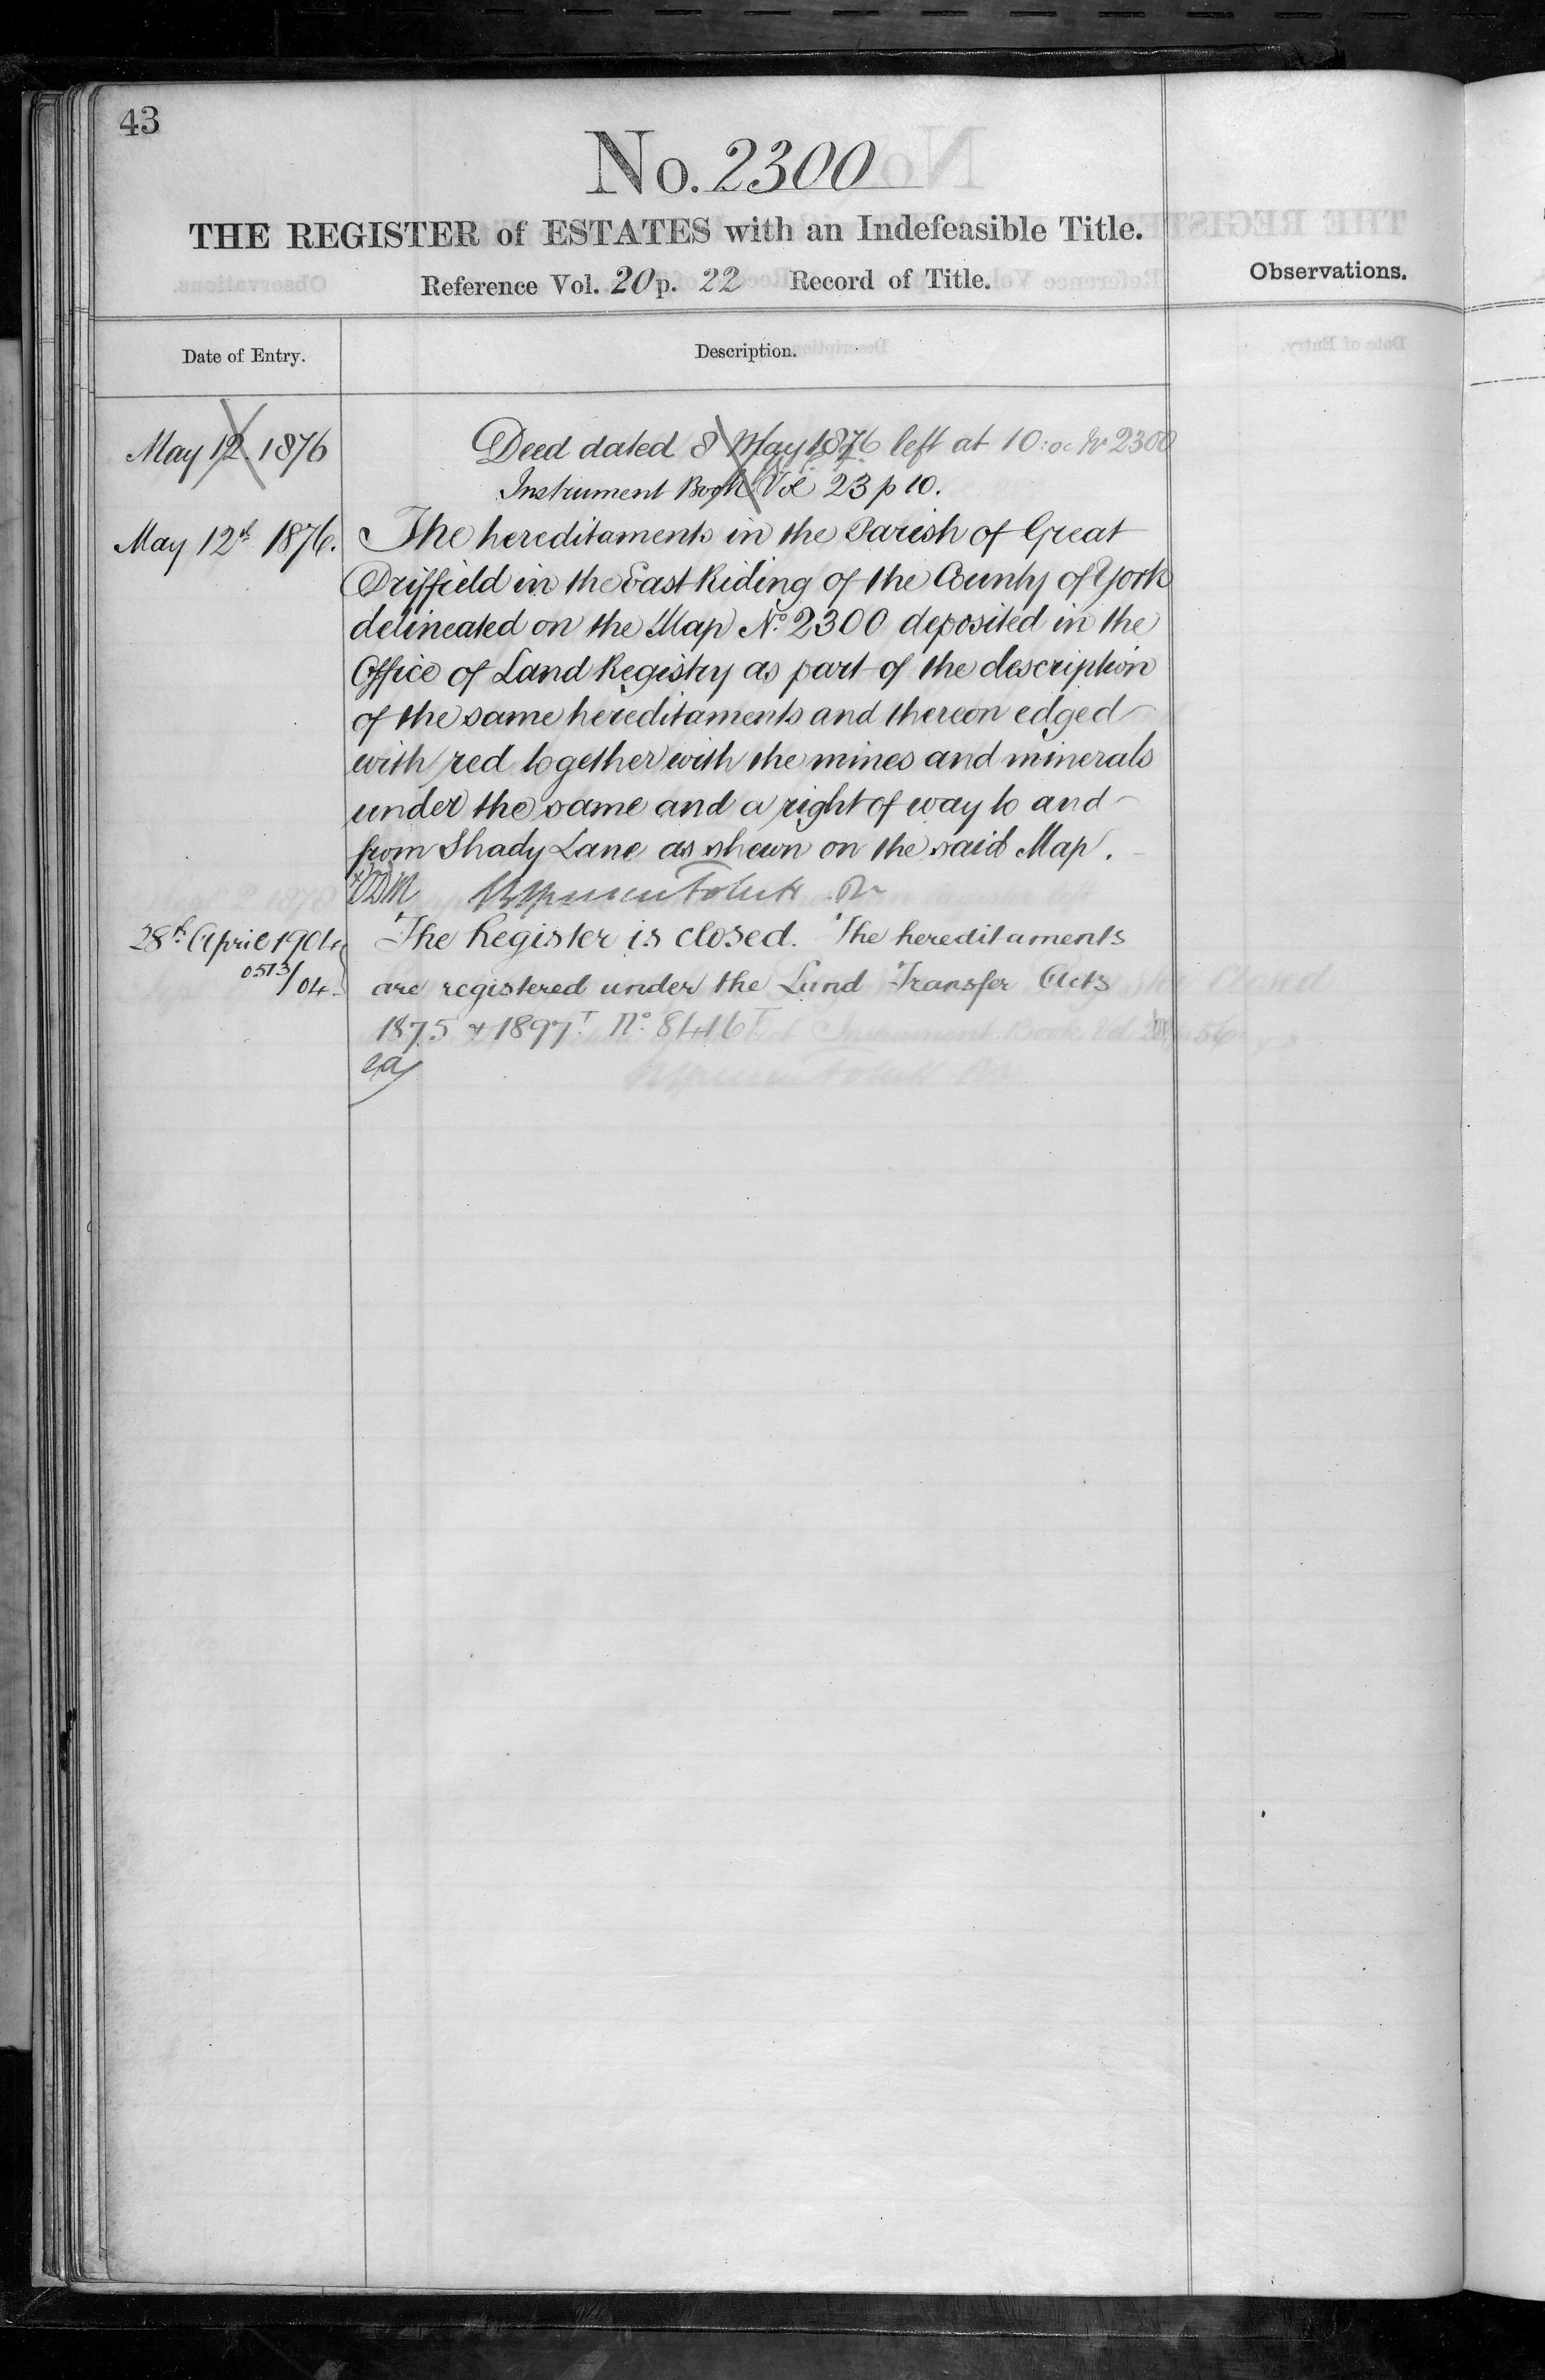 43
No. 2300
THE REGISTER of ESTATES with an Indefeasible Title.
Reference Vol. 20 p. 22 Record of Title.
Observations.
Date of Entry.
Description.
May 12 1876
Deed dated 8 May 1876 left at 10 : oc No 2300
Instrument Book Vol 23 p 10.
May 12th 1876.
The hereditaments in the Parish of Great
Driffield in the East Riding of the County of York
delineated on the Map No. 2300 deposited in the
Office of Land Registry as part of the description
of the same hereditaments and thereon edged
with red together with the mines and minerals
under the same and a right of way to and
from Shady Lane as shewn on the said Map.
28th April 1904
0513/04
The Register is closed. The hereditaments
are registered under the Land Transfer Acts
1875 & 1897 No. 8416